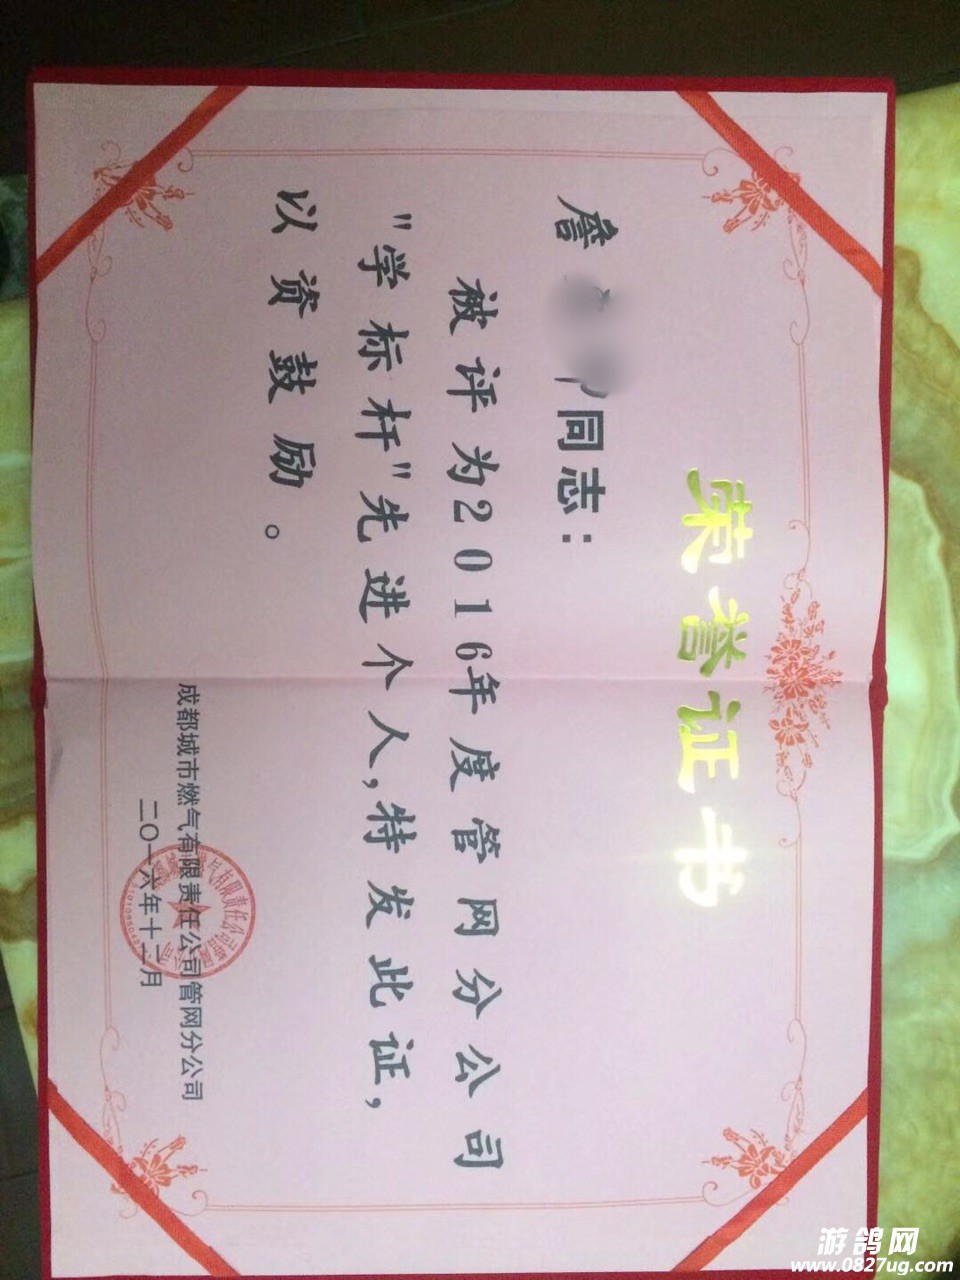 荣誉证书
詹 同志：
被评为2016年度管网分公司
"学标杆"先进个人，特发此证，
以资鼓励。
成都城市燃气有限责任公司管网分公司
二〇一六年十二月
游鸽网
www.0827ug.com